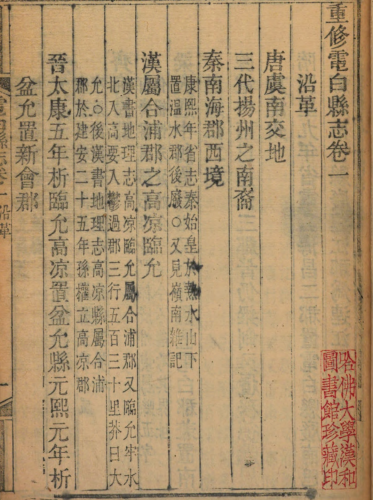 重修電白縣志卷一
沿革
唐虞南交地
三代揚州之南裔
秦南海郡西境
康熙年省志秦始皇於熱水山下
置溫水郡後廢○又見嶺南雜記
漢屬合浦郡之高涼臨允
漢書地理志高涼臨允屬合浦郡又臨允牢水
北入高要入鬱過郡三行五百三十里莽曰大
允○後漢書地理志高涼縣屬合浦
郡於建安二十五年孫權立高涼郡
晉太康五年析臨允高涼置盆允縣元熙元年析
盆允置新會郡
電白縣志卷一
沿革
一
哈佛大學漢和
圖書館珍藏印